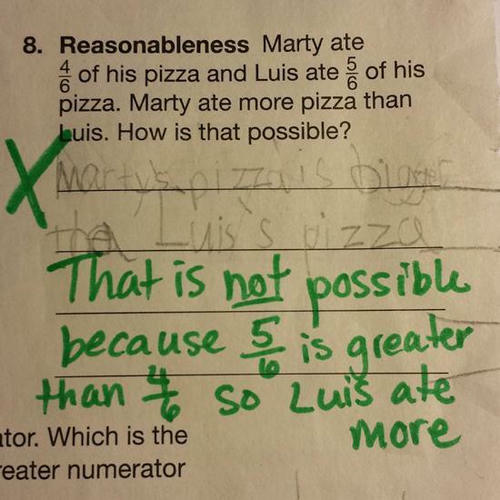 8. Reasonableness Marty ate
4/6 of his pizza and Luis ate 5/6 of his
pizza. Marty ate more pizza than
Luis. How is that possible?
X
Marty's pizza is bigger
than Luis's pizza
That is not possible
because 5/6 is greater
than 4/6 so Luis ate
more
ator. Which is the
reater numerator